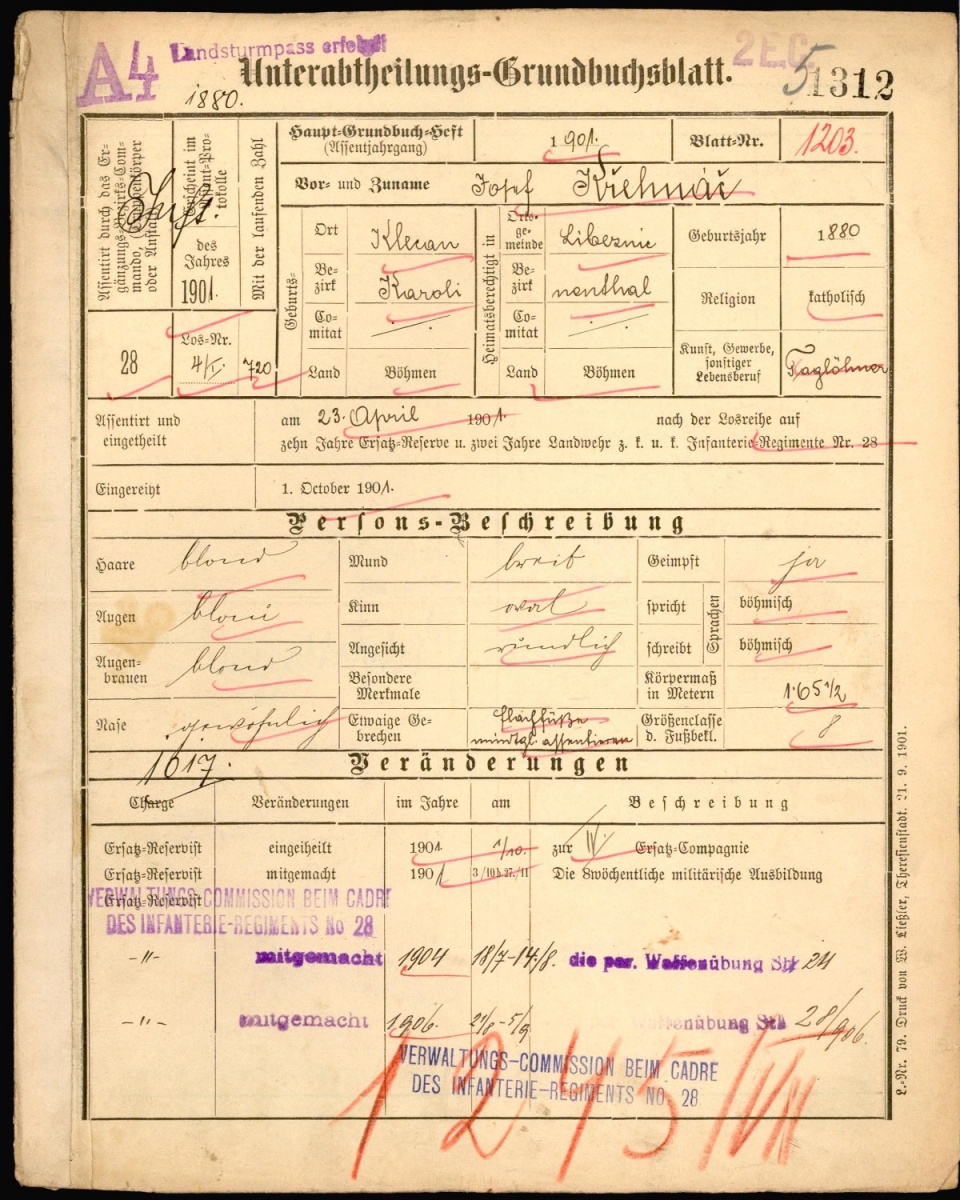 A4
Landsturmpass erfolgt
2E.C.
1880.
Unterabtheilungs-Grundbuchsblatt.
51312
Assentirt durch das Ergänzungs-Bezirks-Commando, Truppenkörper oder Anstalt
Erscheint im Assent-Protokolle
des Jahres
1901.
Mit der laufenden Zahl
28
Los-Nr.
4/I.
720
Haupt-Grundbuch-Heft
(Assentjahrgang)
1901.
Blatt-Nr.
1203.
Vor- und Zuname
Josef Křehnáč
Geburts-
Ort
Klecan
Bezirk
Karoli
Comitat
Land
Böhmen
Heimatsberechtigt in
Ortsgemeinde
Libeznic
Bezirk
nenthal
Comitat
Land
Böhmen
Geburtsjahr
1880
Religion
katholisch
Kunst, Gewerbe,
sonstiger
Lebensberuf
Taglöhner
Assentirt und
eingetheilt
am 23. April 1901. nach der Losreihe auf
zehn Jahre Ersatz-Reserve u. zwei Jahre Landwehr z. k. u. k. Infanterie-Regimente Nr. 28
Eingereiht
1. October 1901.
Persons-Beschreibung
Haare blond Mund breit Geimpft ja
Augen blau Kinn oval spricht Sprachen böhmisch
Augenbrauen blond Angesicht rundlich schreibt böhmisch
Besondere Merkmale Körpermaß in Metern 1·65 1/2
Nase gewöhnlich Etwaige Gebrechen flachfüße
mindtgl. assentieren Größenclasse d. Fußbekl. 8
1617.
Veränderungen
Charge Veränderungen im Jahre am Beschreibung
Ersatz-Reservist eingetheilt 1901. 1/10. zur IV. Ersatz-Compagnie
Ersatz-Reservist mitgemacht 1901 3/10 b. 27./11 Die 8wöchentliche militärische Ausbildung
Ersatz-Reservist
VERWALTUNGS-COMMISSION BEIM CADRE
DES INFANTERIE-REGIMENTS No 28
-"- mitgemacht 1904 18/7-14/8. die per. Waffenübung 24
-"- mitgemacht 1906. 5/9 per. Waffenübung 28/906.
VERWALTUNGS-COMMISSION BEIM CADRE
DES INFANTERIE-REGIMENTS NO. 28
1245/VIII
L.-Nr. 79. Druck von W. Ließler, Theresienstadt. 21. 9. 1901.